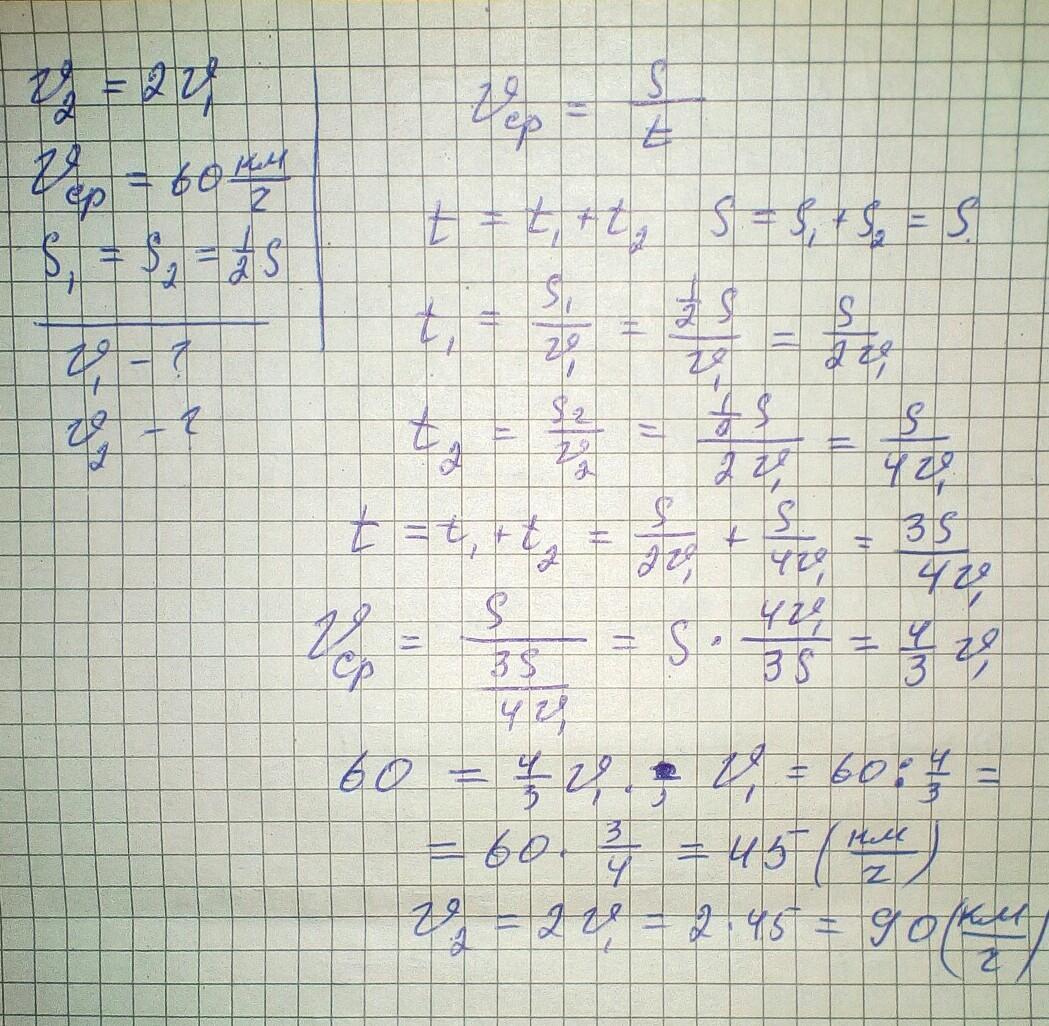 v₂ = 2v₁
vср = 60 км/ч
S₁ = S₂ = 1/2 S
v₁ - ?
v₂ - ?
vср = S/t
t = t₁ + t₂ S = S₁ + S₂ = S.
t₁ = S₁/v₁ = (1/2 S)/v₁ = S/(2v₁)
t₂ = S₂/v₂ = (1/2 S)/(2v₁) = S/(4v₁)
t = t₁ + t₂ = S/(2v₁) + S/(4v₁) = 3S/(4v₁)
vср = S/(3S/(4v₁)) = S · 4v₁/(3S) = 4/3 v₁
60 = 4/3 v₁. ; v₁ = 60 : 4/3 =
= 60 · 3/4 = 45 (км/ч)
v₂ = 2v₁ = 2 · 45 = 90 (км/ч)